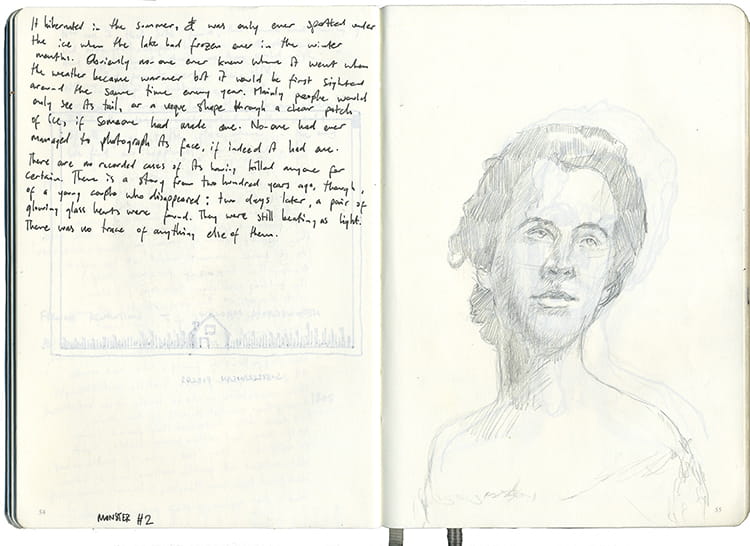 It hibernated in the summer, it was only ever spotted under
the ice when the lake had frozen over in the winter
months. Obviously no-one ever knew where it went when
the weather became warmer but it would be first sighted
around the same time every year. Mainly people would
only see its tail, or a vague shape through a clear patch
of ice, if someone had made one. No-one had ever
managed to photograph its face, if indeed it had one.
There are no recorded cases of its having killed anyone for
certain. There is a story from two hundred years ago, though,
of a young couple who disappeared; two days later, a pair of
glowing glass hearts were found. They were still beating as light.
There was no trace of anything else of them.
54
MONSTER #2
55